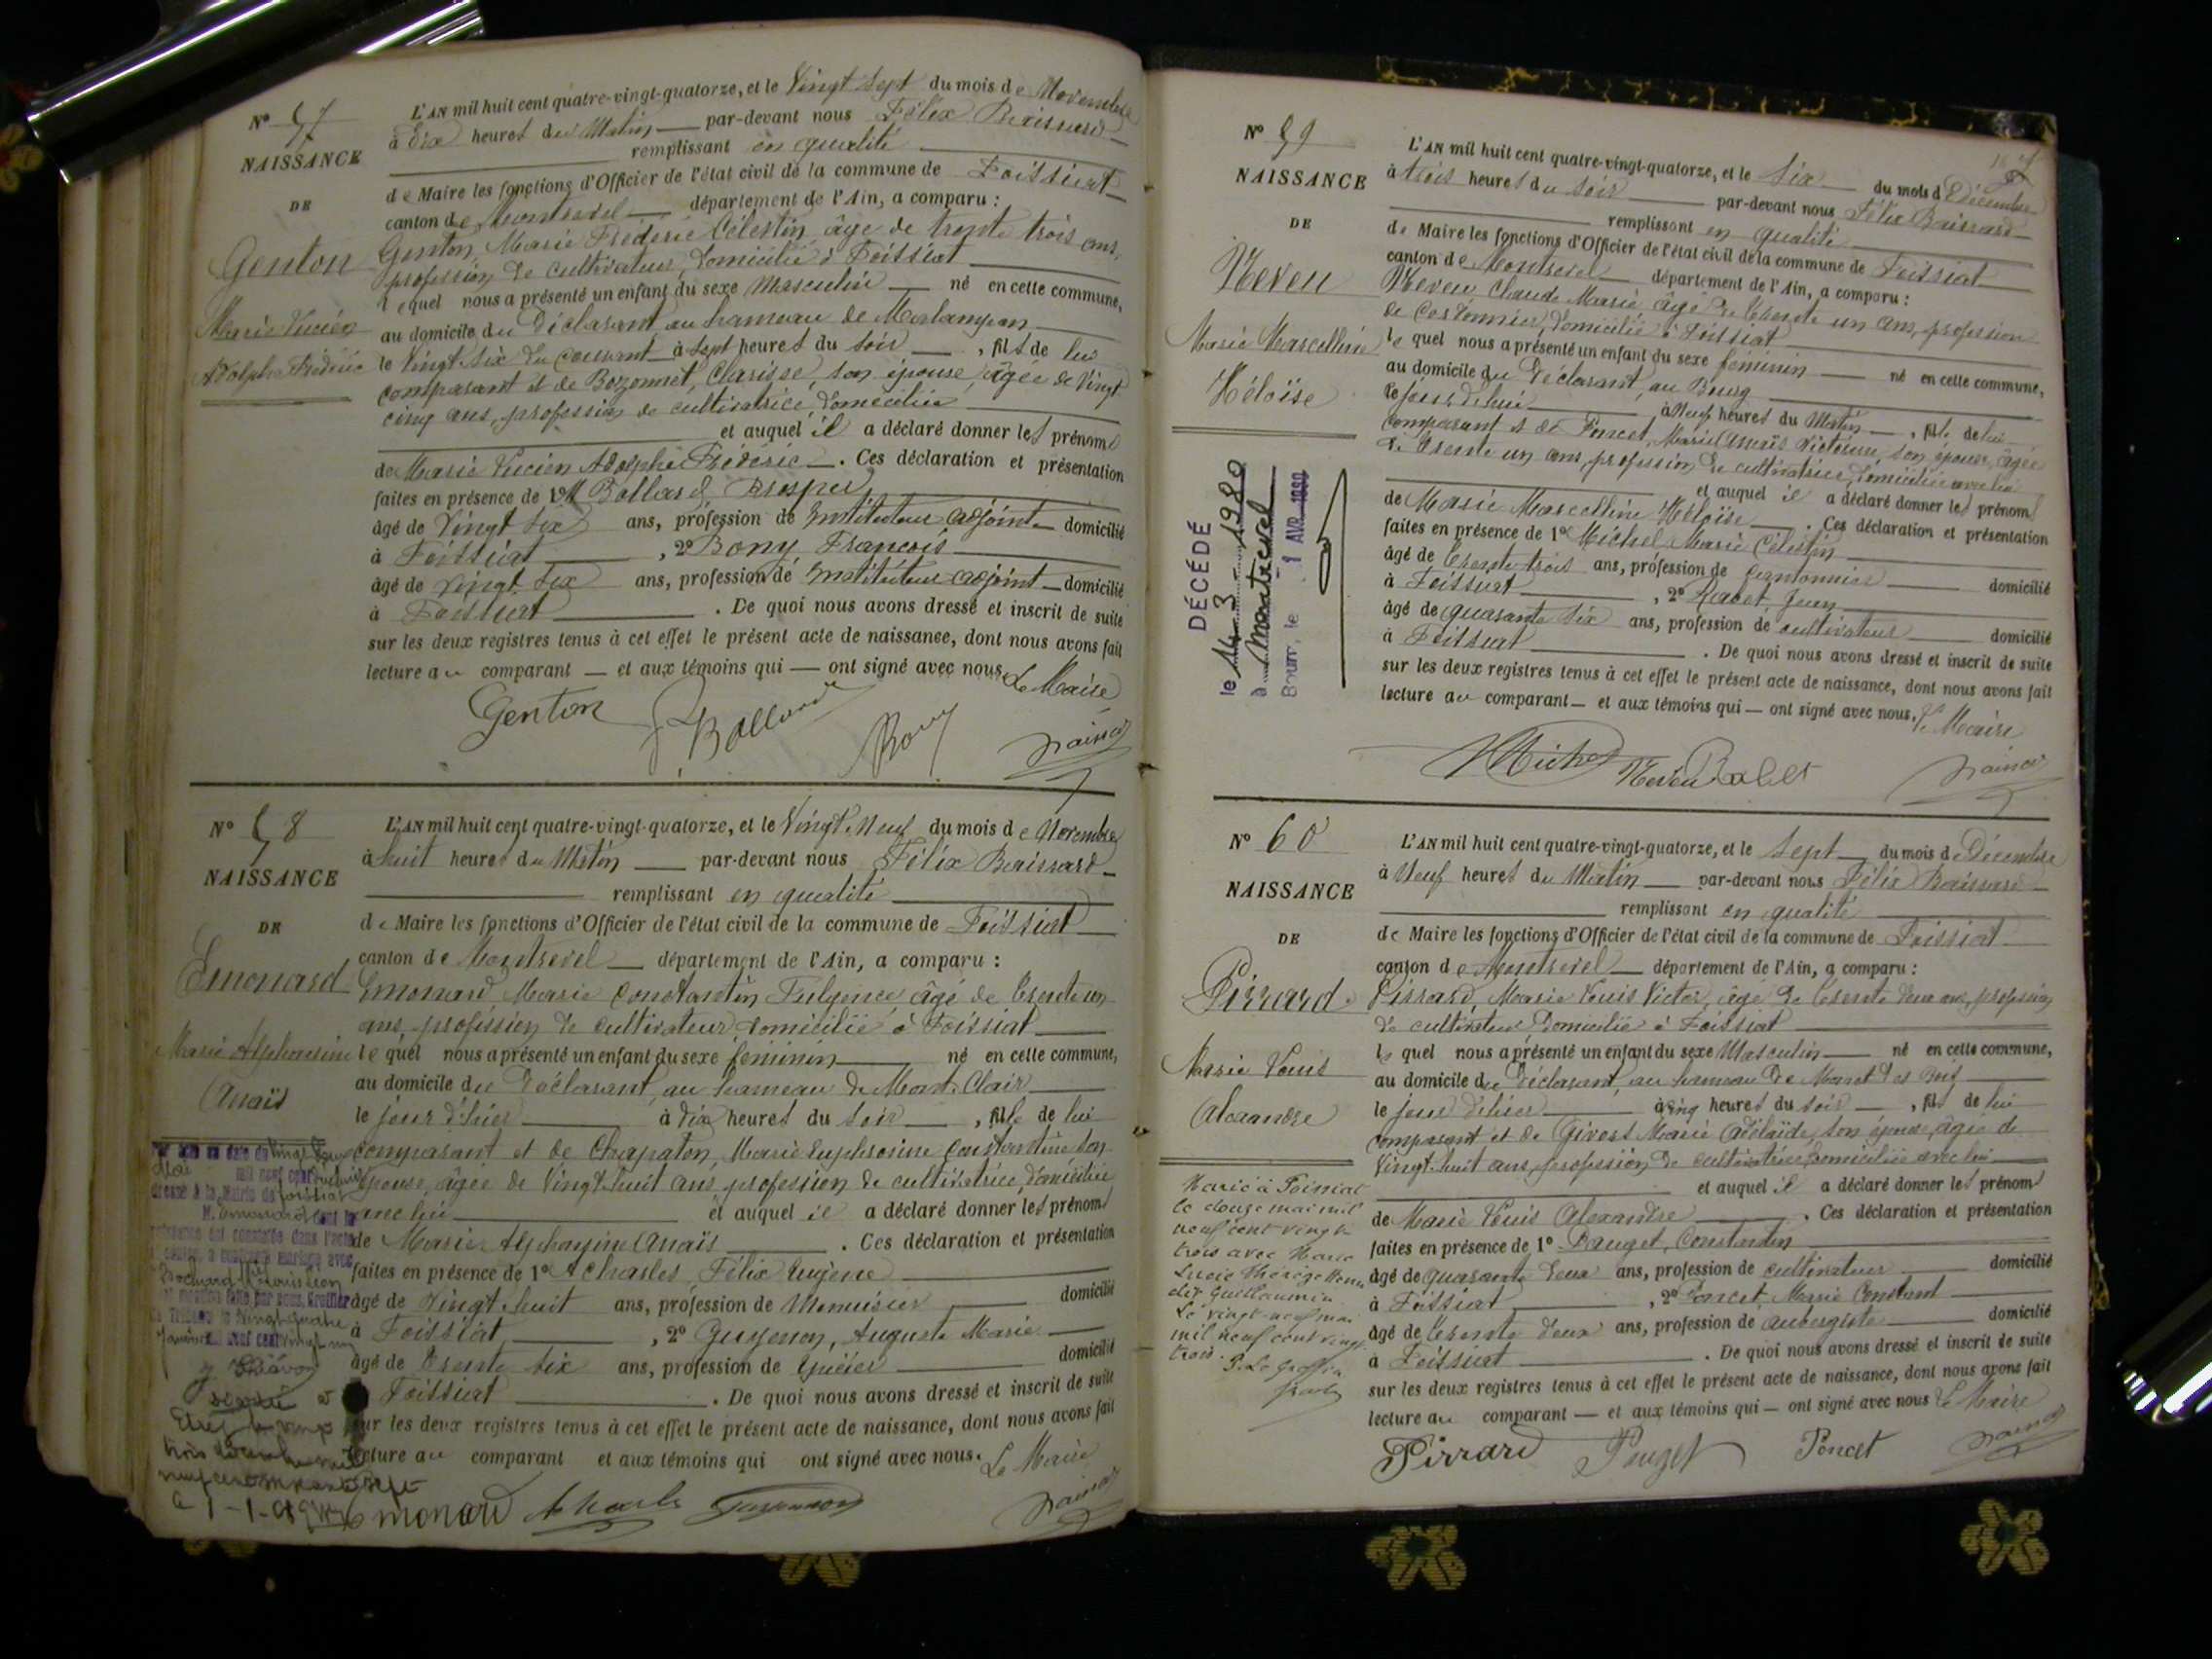 N° 57
NAISSANCE
DE
Genton
Marie Lucien
Adolphe Frédéric
L'AN mil huit cent quatre-vingt-quatorze, et le Vingt Sept du mois de Novembre
à dix heures du Matin par-devant nous Félix
remplissant en qualité
de Maire les fonctions d'Officier de l'état civil de la commune de Foissiat
canton de Montrevel département de l'Ain, a comparu :
Genton, Marie Frédéric Célestin, âgé de trente trois ans,
profession de cultivateur, domicilié à Foissiat
lequel nous a présenté un enfant du sexe Masculin né en cette commune,
au domicile du Déclarant, au hameau de
le Vingt-Six du courant à Sept heures du soir , fils de lui
comparant et de Bozonnet, Clarisse, son épouse, âgée de Vingt
cinq ans, profession de cultivatrice, domiciliée
et auquel il a déclaré donner les prénoms
de Marie Lucien Adolphe Frédéric . Ces déclaration et présentation
faites en présence de 1° M Bollard, Prosper
âgé de Vingt Six ans, profession de Instituteur adjoint domicilié
à Foissiat , 2° Bony François
âgé de Vingt Six ans, profession de Instituteur adjoint domicilié
à Foissiat . De quoi nous avons dressé et inscrit de suite
sur les deux registres tenus à cet effet le présent acte de naissance, dont nous avons fait
lecture au comparant — et aux témoins qui — ont signé avec nous. Le Maire
Genton Bollard Bony
N° 58
NAISSANCE
DE
Emonard
Marie Alphonsine
Anaïs
L'AN mil huit cent quatre-vingt-quatorze, et le Vingt-Neuf du mois de Novembre
à huit heures du Matin par-devant nous Félix
remplissant en qualité
de Maire les fonctions d'Officier de l'état civil de la commune de Foissiat
canton de Montrevel département de l'Ain, a comparu :
Emonard Marie Constantin Fulgence âgé de trente un
ans, profession de cultivateur, domicilié à Foissiat
lequel nous a présenté un enfant du sexe féminin né en cette commune,
au domicile du Déclarant, au hameau de Mont-Clair
le jour d'hier à dix heures du soir , fille de lui
comparant et de Chapaton, Marie Euphrosine Constantine son
épouse, âgée de Vingt-huit ans, profession de cultivatrice, domiciliée
avec lui et auquel il a déclaré donner les prénoms
de Marie Alphonsine Anaïs . Ces déclaration et présentation
faites en présence de 1° Acharles, Félix Eugène
âgé de Vingt-huit ans, profession de Menuisier domicilié
à Foissiat , 2° Guyenon, Auguste Marie
âgé de trente Six ans, profession de Epicier domicilié
Foissiat . De quoi nous avons dressé et inscrit de suite
sur les deux registres tenus à cet effet le présent acte de naissance, dont nous avons fait
lecture au comparant et aux témoins qui ont signé avec nous. Le Maire
Emonard
N° 59
NAISSANCE
DE
Neveu
Marie Marcelline
Héloïse
DÉCÉDÉ
le 14 3 1980
à Montrevel
Bourg, le 1 AVR 1980
L'AN mil huit cent quatre-vingt-quatorze, et le Six du mois de Décembre
à trois heures du soir par-devant nous Félix
remplissant en qualité
de Maire les fonctions d'Officier de l'état civil de la commune de Foissiat
canton de Montrevel département de l'Ain, a comparu :
Neveu, Claude Marie âgé de trente un ans, profession
de Cordonnier, domicilié à Foissiat
lequel nous a présenté un enfant du sexe féminin né en cette commune,
au domicile du Déclarant, au Bourg
à Neuf heures du Matin , fille de lui
comparant et de Poncet, Marie Anaïs Victorine, son épouse, âgée
de trente un ans, profession de cultivatrice, domiciliée avec lui
et auquel il a déclaré donner les prénoms
de Marie Marcelline Héloïse . Ces déclaration et présentation
faites en présence de 1° Michel Marie Célestin
âgé de trente trois ans, profession de cantonnier domicilié
à Foissiat , 2° Rabet Jean
âgé de quarante six ans, profession de cultivateur domicilié
à Foissiat . De quoi nous avons dressé et inscrit de suite
sur les deux registres tenus à cet effet le présent acte de naissance, dont nous avons fait
lecture au comparant — et aux témoins qui — ont signé avec nous. Le Maire
Michel Neveu Rabet
N° 60
NAISSANCE
DE
Pirrard
Marie Louis
Alexandre
Marié à Foissiat
le douze mai mil
neuf cent vingt
trois avec Marie
Lucie Thérèse
Guillaumin
Le vingt-neuf mai
mil neuf cent vingt
trois.
L'AN mil huit cent quatre-vingt-quatorze, et le Sept du mois de Décembre
à Neuf heures du Matin par-devant nous Félix
remplissant en qualité
de Maire les fonctions d'Officier de l'état civil de la commune de Foissiat
canton de Montrevel département de l'Ain, a comparu :
Pirrard, Marie Louis Victor, âgé de trente deux ans, profession
de cultivateur, domicilié à Foissiat
lequel nous a présenté un enfant du sexe Masculin né en cette commune,
au domicile du Déclarant, au hameau de
le jour d'hier à cinq heures du soir , fils de lui
comparant et de Givort Marie Adélaïde son épouse, âgée de
Vingt-huit ans, profession de cultivatrice, domiciliée avec lui
et auquel il a déclaré donner les prénoms
de Marie Louis Alexandre . Ces déclaration et présentation
faites en présence de 1° Pauget, Constantin
âgé de quarante deux ans, profession de cultivateur domicilié
à Foissiat , 2° Poncet, Marie Constant
âgé de trente deux ans, profession de aubergiste domicilié
à Foissiat . De quoi nous avons dressé et inscrit de suite
sur les deux registres tenus à cet effet le présent acte de naissance, dont nous avons fait
lecture au comparant — et aux témoins qui — ont signé avec nous Le Maire
Pirrard Pauget Poncet